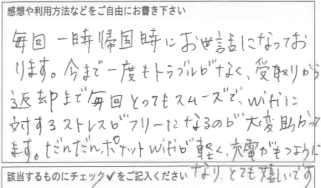 感想や利用方法などをご自由にお書き下さい
毎回一時帰国時にお世話になってお
ります。今まで一度もトラブルがなく、受取りから
返却まで毎回とってもスムーズで、wifiに
対するストレスがフリーになるのが大変助かって
ます。だんだんポケットwifiが軽く、充電がもつように
なり、とても嬉しいです
該当するものにチェック✓をご記入ください